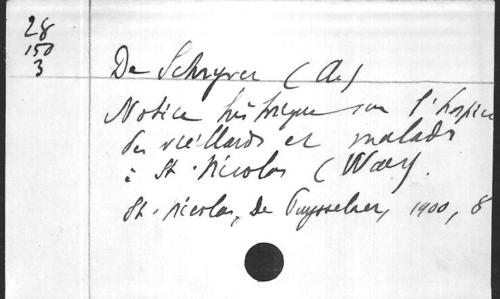 28
150
3
De Schryver (Ad)
Notice historique sur l'hospice
des vieillards et malads
à St. Nicolas (Waes).
St. Nicolas, De Puysseleer, 1900, 8